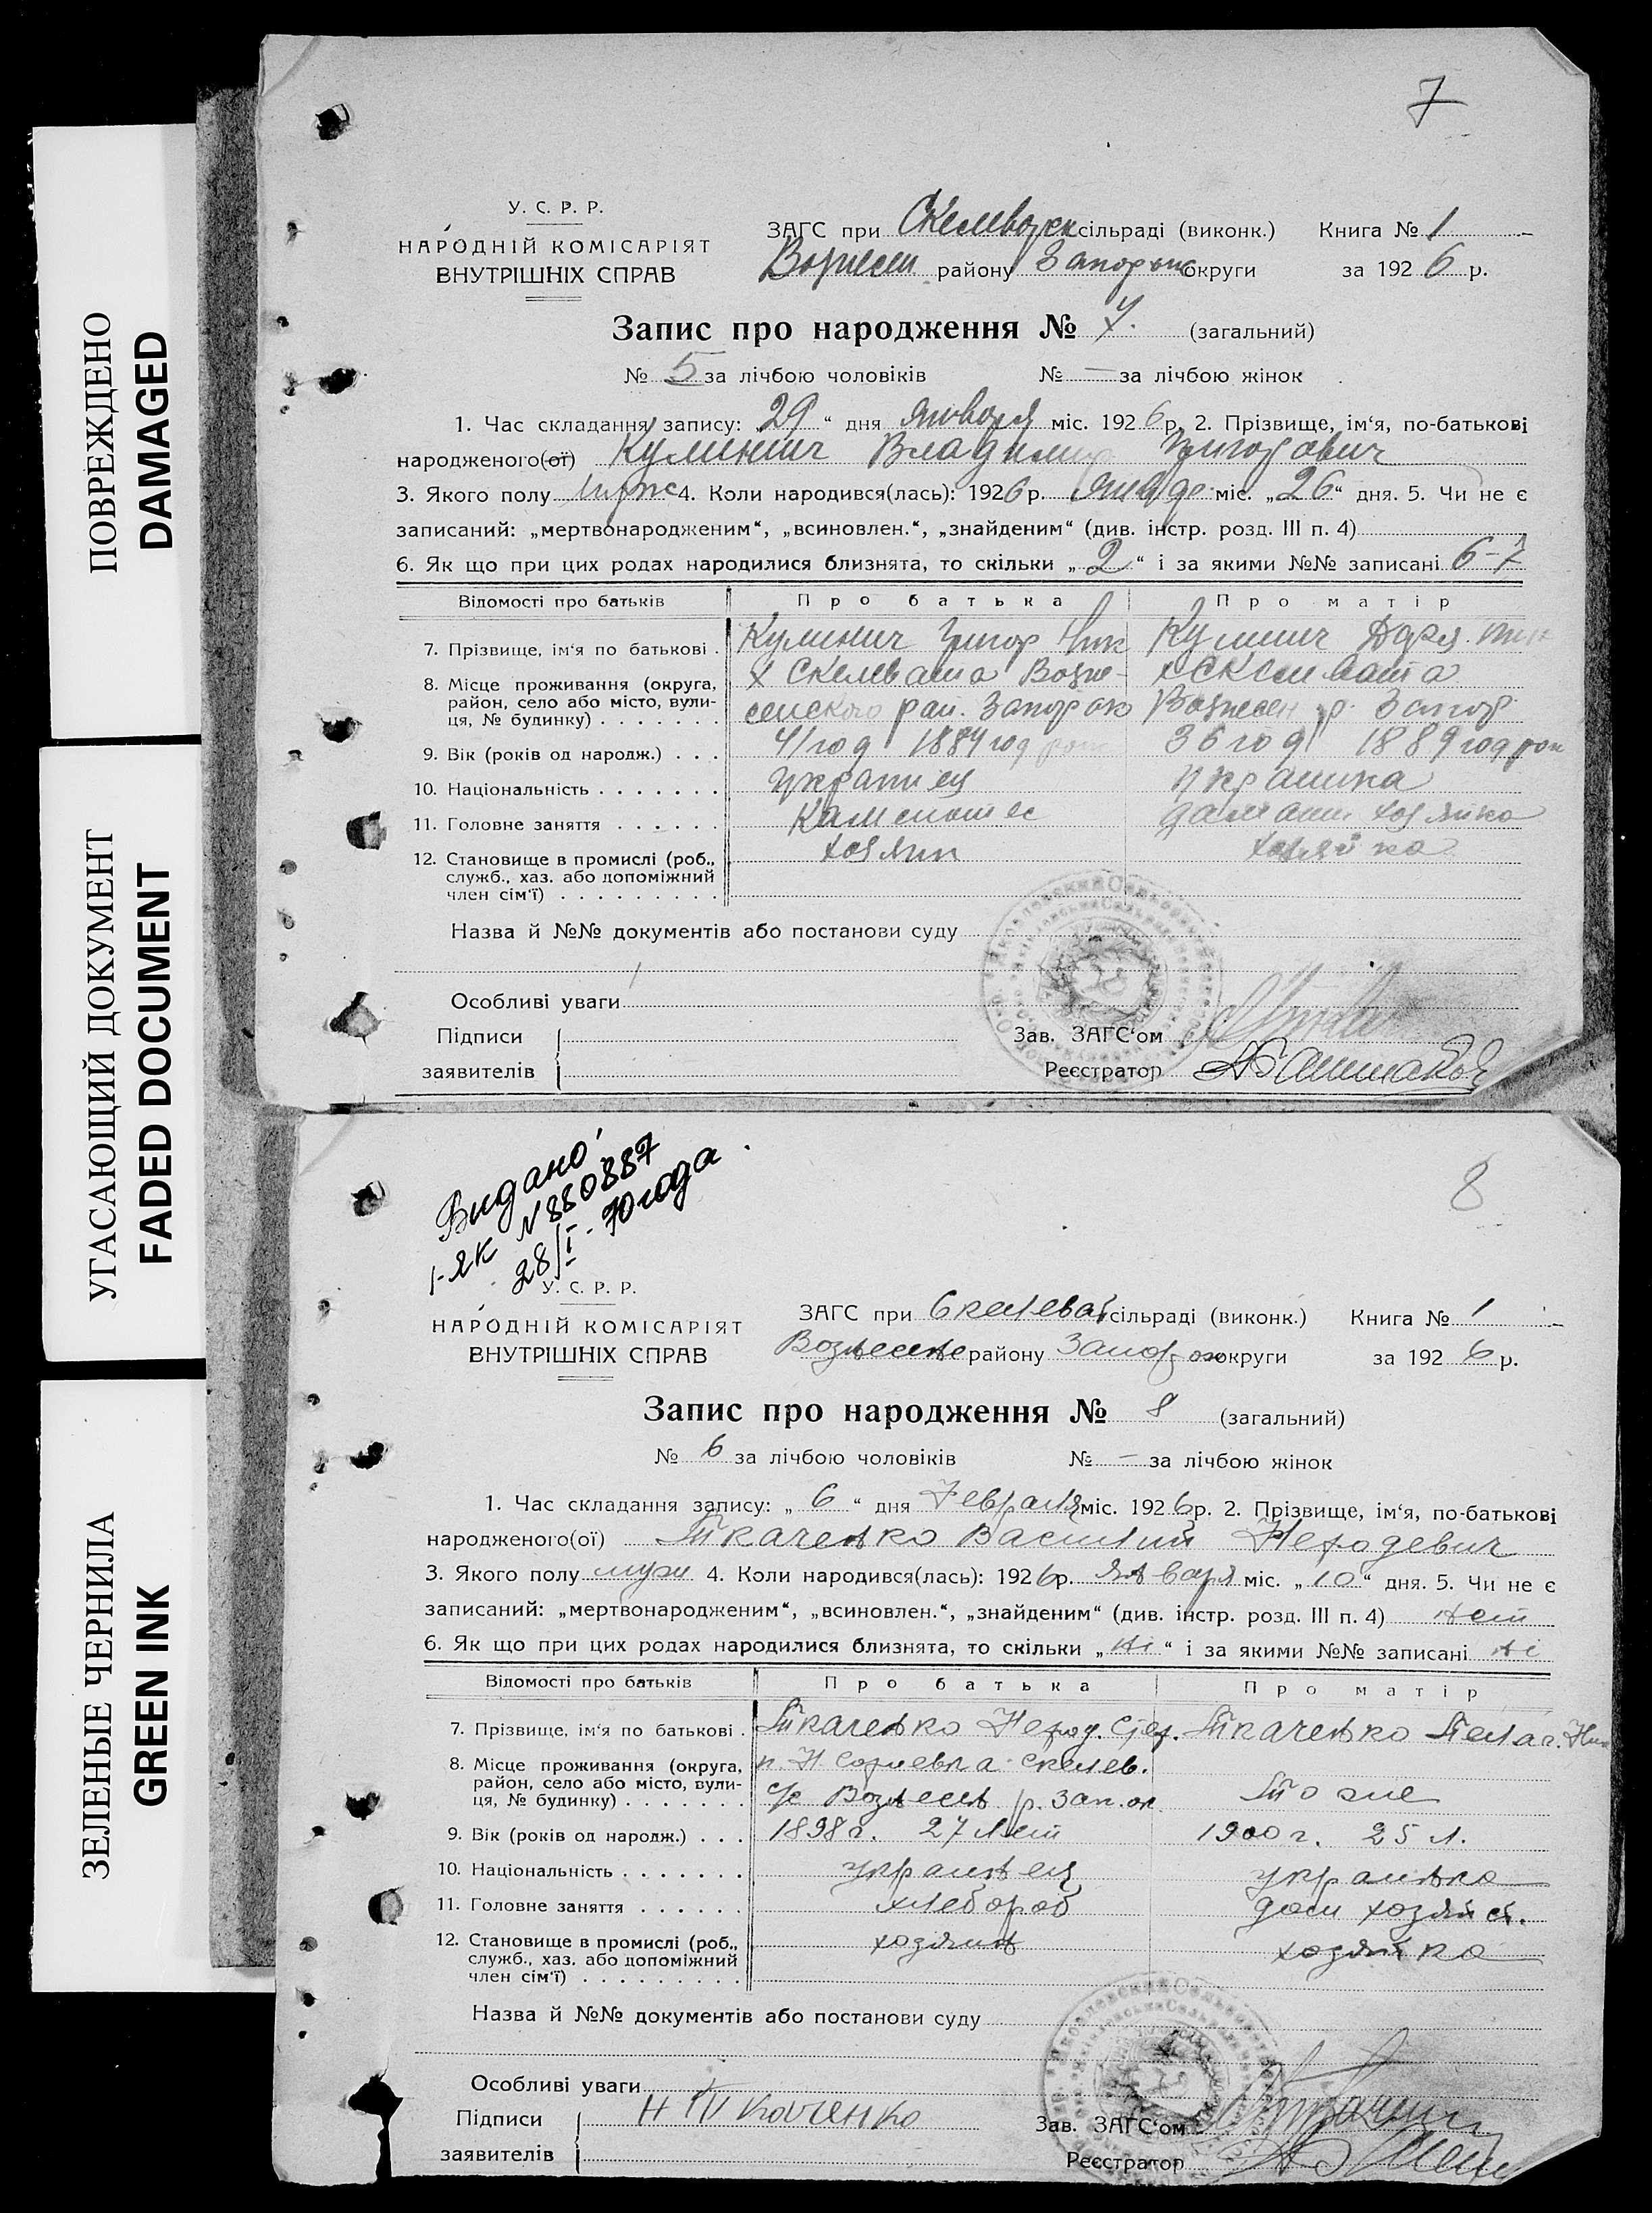 ПОВРЕЖДЕНО
DAMAGED
УГАСАЮЩИЙ ДОКУМЕНТ
FADED DOCUMENT
ЗЕЛЕНЫЕ ЧЕРНИЛА
GREEN INK
7
У. С. Р. Р.
НАРОДНІЙ КОМІСАРІЯТ
ВНУТРІШНІХ СПРАВ
ЗАГС при сільраді (виконк.) Книга № 1
району округи за 1926 р.
Запис про народження № 7. (загальний)
№ 5 за лічбою чоловіків № — за лічбою жінок
1. Час складання запису: 29 “ дня января міс. 1926 р. 2. Прізвище, ім‘я, по-батькові
народженого(ої) Кулинич Владимир Григорович
3. Якого полу 4. Коли народився(лась): 1926 р. міс. „26“ дня. 5. Чи не є
записаний: „мертвонародженим“, „всиновлен.“, „знайденим“ (див. інстр. розд. III п. 4)
6. Як що при цих родах народилися близнята, то скільки „2“ і за якими №№ записані 6-7
Відомості про батьків Про батька Про матір
7. Прізвище, ім‘я по батькові . Кулинич Григор Ник Кулинич
8. Місце проживання (округа, район, село або місто, вулиця, № будинку) . . . . . . . х Скелевата Возне-
сенского рай. Запор ок Вознесен р. Запор
9. Вік (років од народж.) . . . 41 год 1884 год 36 год 1889 год
10. Національність . . . . . . . украинец украинка
11. Головне заняття . . . . . . Каменотес домашн хозяйка
12. Становище в промислі (роб., служб., хаз. або допоміжний член сім‘ї) . . . . . . . . . хозяин хозяйка
Назва й №№ документів або постанови суду
Особливі уваги
Підписи
заявителів
Зав. ЗАГС‘ом
Реєстратор
Видано
І-ЯК N880887
28/I-70 года.
8
У. С. Р. Р.
НАРОДНІЙ КОМІСАРІЯТ
ВНУТРІШНІХ СПРАВ
ЗАГС при Скелеват сільраді (виконк.) Книга № 1
Вознесенс району Запор округи за 1926 р.
Запис про народження № 8 (загальний)
№ 6 за лічбою чоловіків № — за лічбою жінок
1. Час складання запису: „6“ дня Февраля міс. 1926 р. 2. Прізвище, ім‘я, по-батькові
народженого(ої) Ткаченко Василий Нефодевич
3. Якого полу муж 4. Коли народився(лась): 1926 р. января міс. „10“ дня. 5. Чи не є
записаний: „мертвонародженим“, „всиновлен.“, „знайденим“ (див. інстр. розд. III п. 4) нет
6. Як що при цих родах народилися близнята, то скільки „ні“ і за якими №№ записані ні
Відомості про батьків Про батька Про матір
7. Прізвище, ім‘я по батькові . Ткаченко Нефод. Ткаченко Пелаг.
8. Місце проживання (округа, район, село або місто, вулиця, № будинку) . . . . . . . Скелев.
с/с Вознесен р. Зап. ок То же
9. Вік (років од народж.) . . . 1898 г. 27 лет 1900 г. 25 л.
10. Національність . . . . . . . украинец украинка
11. Головне заняття . . . . . . хлебороб дом хозяйст.
12. Становище в промислі (роб., служб., хаз. або допоміжний член сім‘ї) . . . . . . . . . хозяин хозяйка
Назва й №№ документів або постанови суду
Особливі уваги
Підписи Н Ткаченко
заявителів
Зав. ЗАГС‘ом
Реєстратор